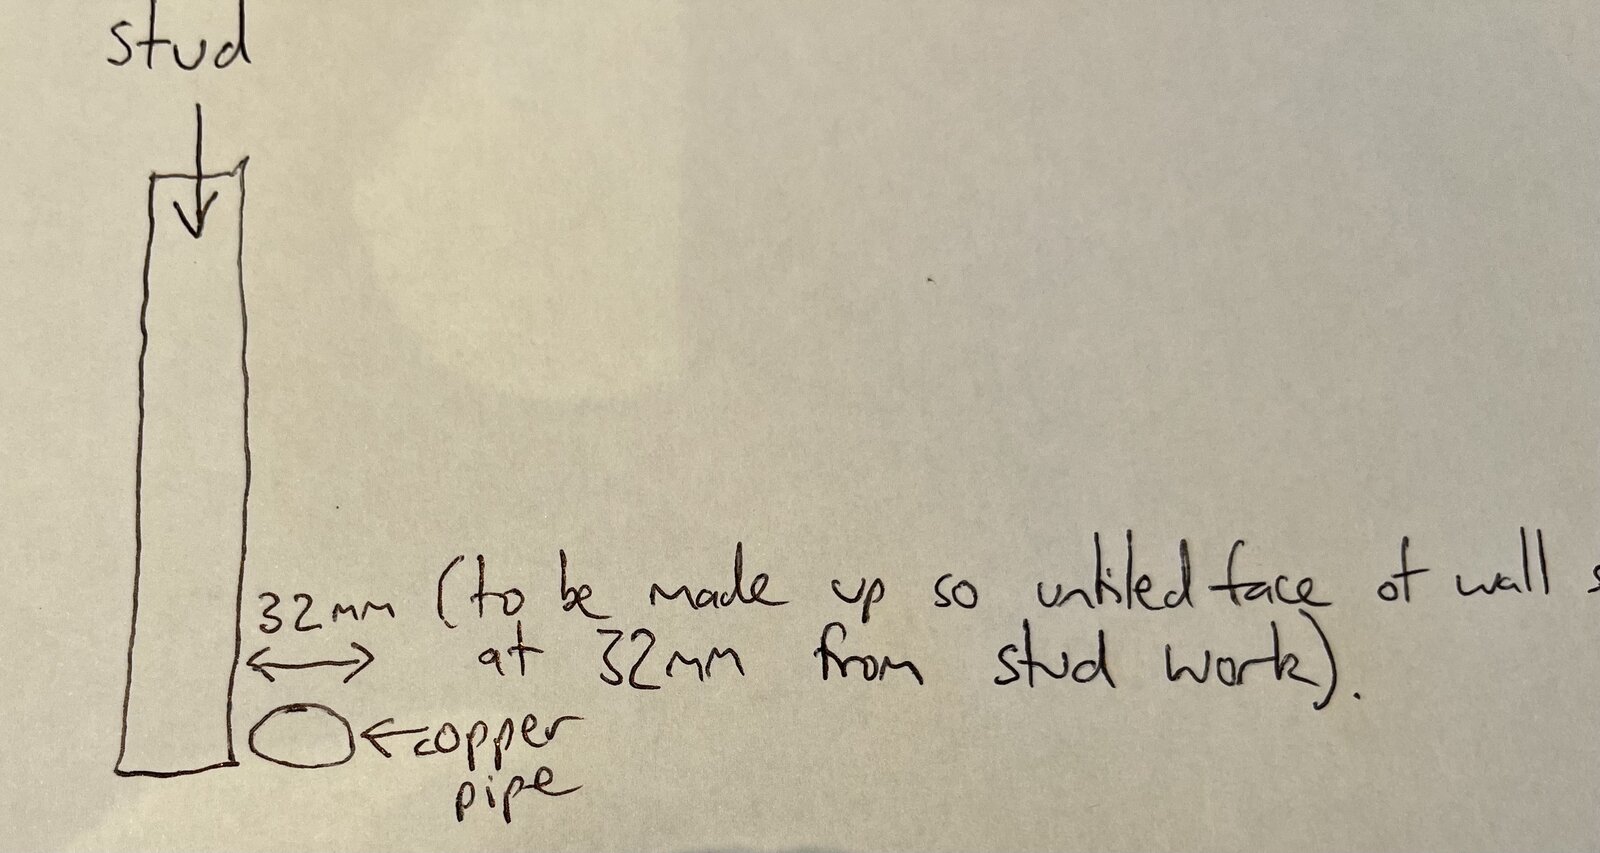 stud
32mm (to be made up so untiled face of wall s
at 32mm from stud work).
copper
pipe